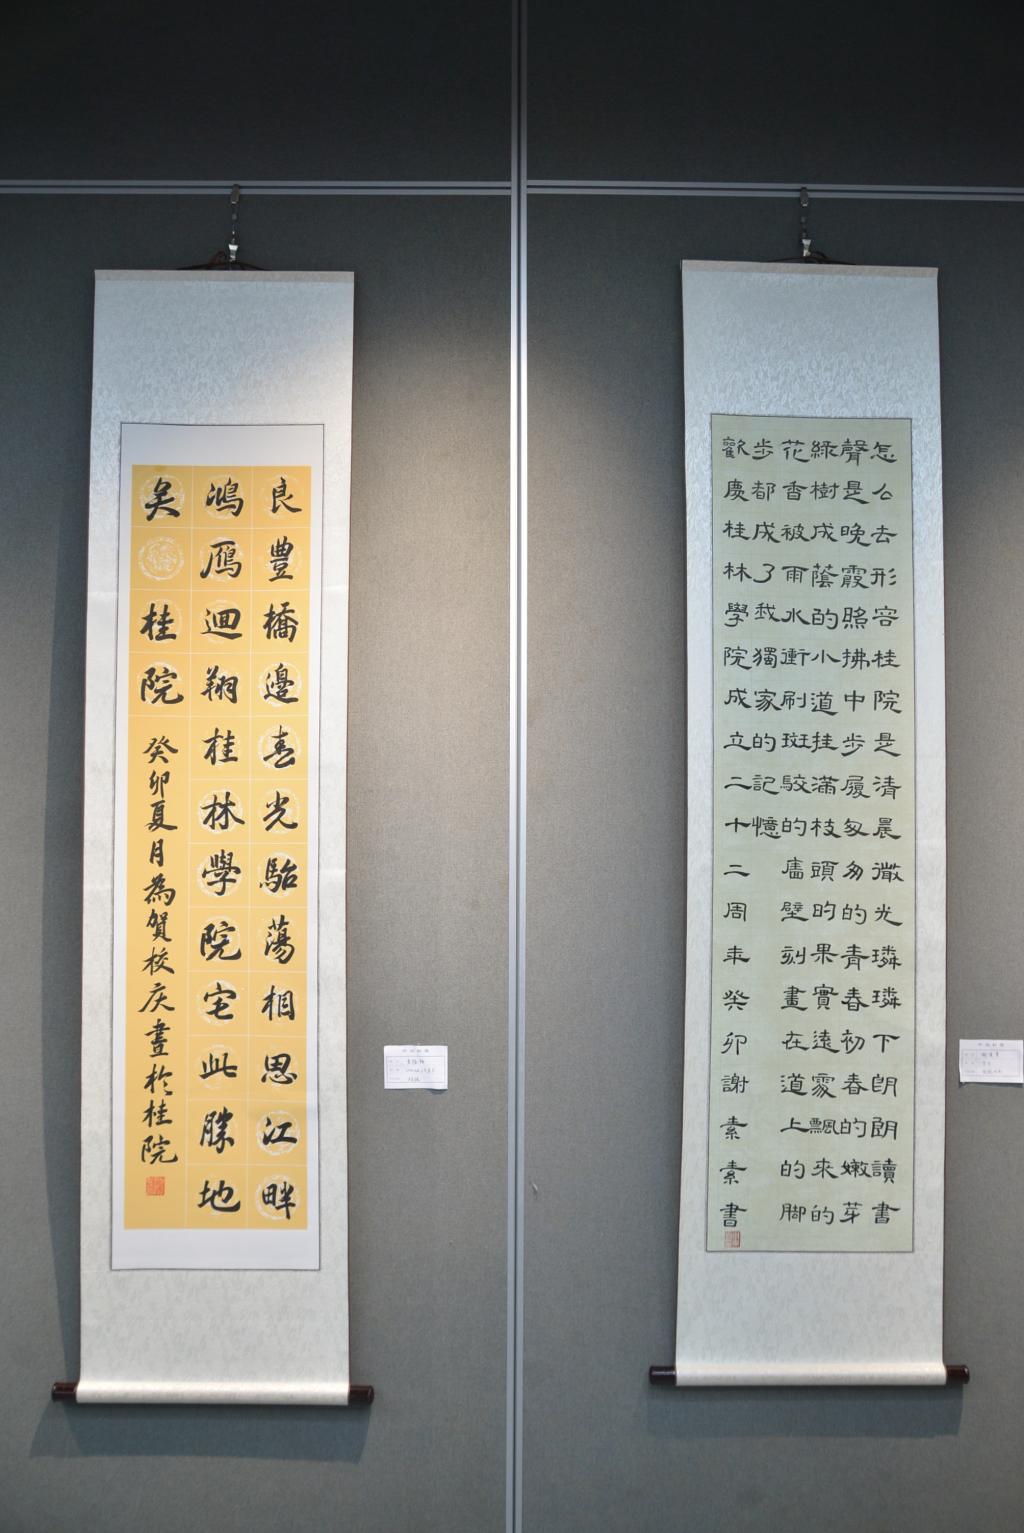 良豐橋邊春光駘蕩相思江畔
鴻鴈迴翔桂林學院宅此勝地
美 桂院
癸卯夏月為賀校庆書於桂院
怎么去形容桂院是清晨微光璘璘下朗朗讀書
聲是晚霞照拂中步履匆匆的青春初春的嫩芽
綠樹成蔭的小道挂滿枝頭的果實遠處飄來的
花香被雨水衝刷斑駮的牆壁刻畫在道上的脚
步都成了我獨家的記憶
歡慶桂林學院成立二十二周年癸卯謝素素書